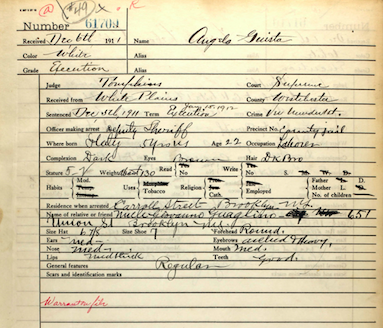 #49 X K
Number 61709
Received Dec 6th 1911 Name Angelo Giusta
Color White Alias
Grade Execution Alias
Judge Tompkins Court Supreme
Received from White Plains County Westchester
Sentenced Dec 5th 1911 Term Execution Jan. 15. 1912 Crime
Officers making arrest Deputy Sheriff Precinct No. County Jail
Where born Italy Age 22 Occupation Laborer
Complexion Dark Eyes Brown Hair Dk Bro
Stature 5. Weight 130 Read Write No S. W.
Habits Mod. Uses Tobacco Religion Cath. Employed Father Mother No. of children
Residence when arrested Carroll Street Brooklyn N.Y.
Name of relative or friend Uncle Giovanni 651
Union St Brooklyn N.Y.
Size Hat 6 7/8 Size Shoe 7 Forehead Round.
Ears med- Eyebrows Heavy.
Nose med- Mouth Med.
Lips med thick Teeth Good.
General features Regular
Scars and identification marks